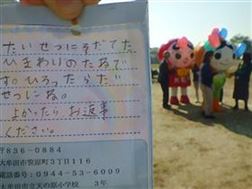 たいせつにそだてた
ひまわりのたねで
す。ひろったらだ
せつしてね。
よかったらお返事
ください。
〒836-0884
大牟田市笹原町3丁目116
電話 0944-53-6009
大牟田市立天の原小学校 3年